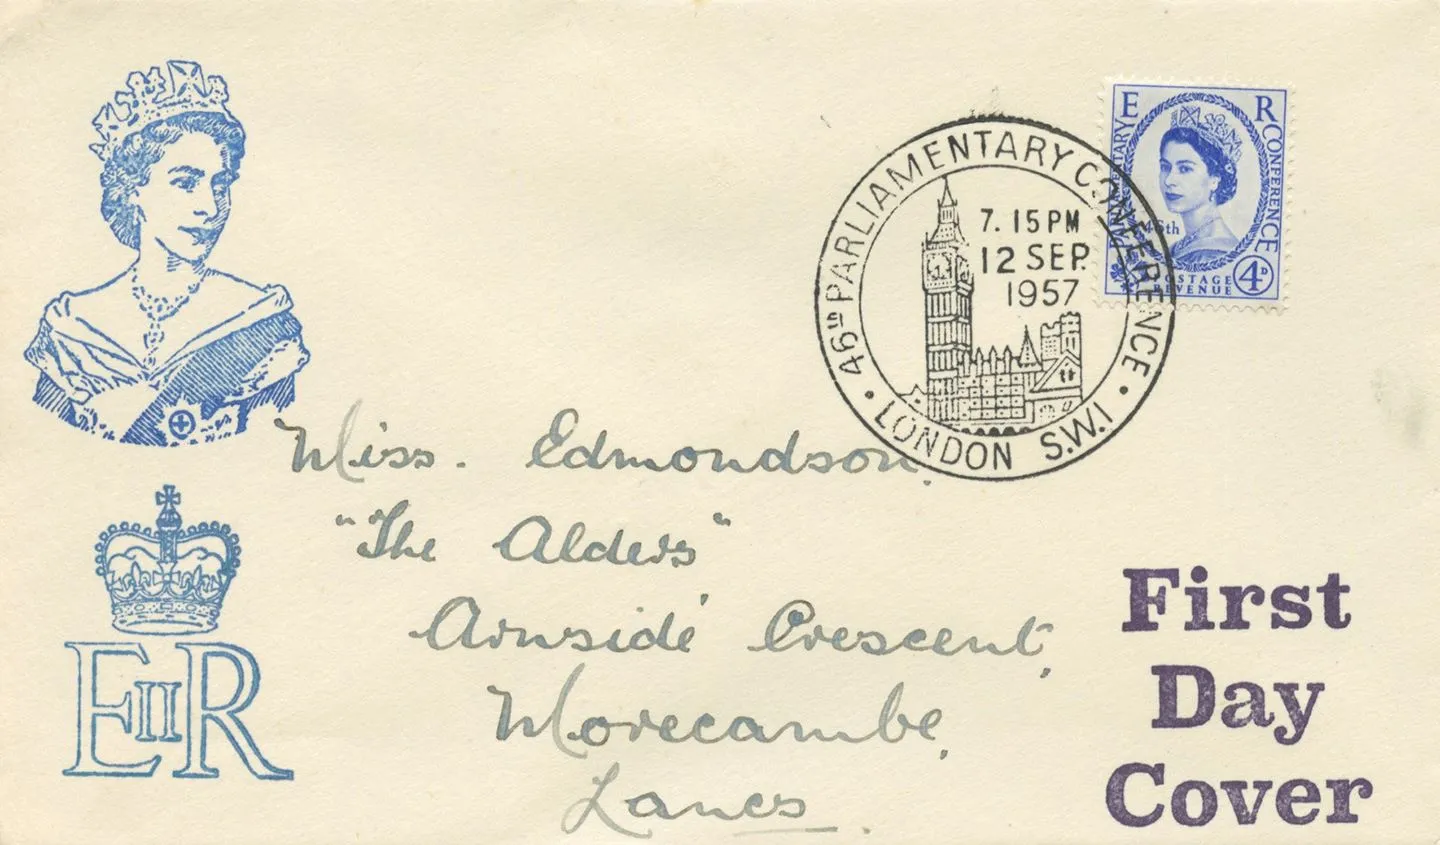 46th PARLIAMENTARY CONFERENCE
7.15PM
12 SEP.
1957
• LONDON S.W.1 •
E R
PARLIAMENTARY
CONFERENCE
46th
POSTAGE
REVENUE
4D
Miss. Edmondson,
"The Alders"
Arnside Crescent,
Morecambe,
Lancs.
EIIR
First
Day
Cover